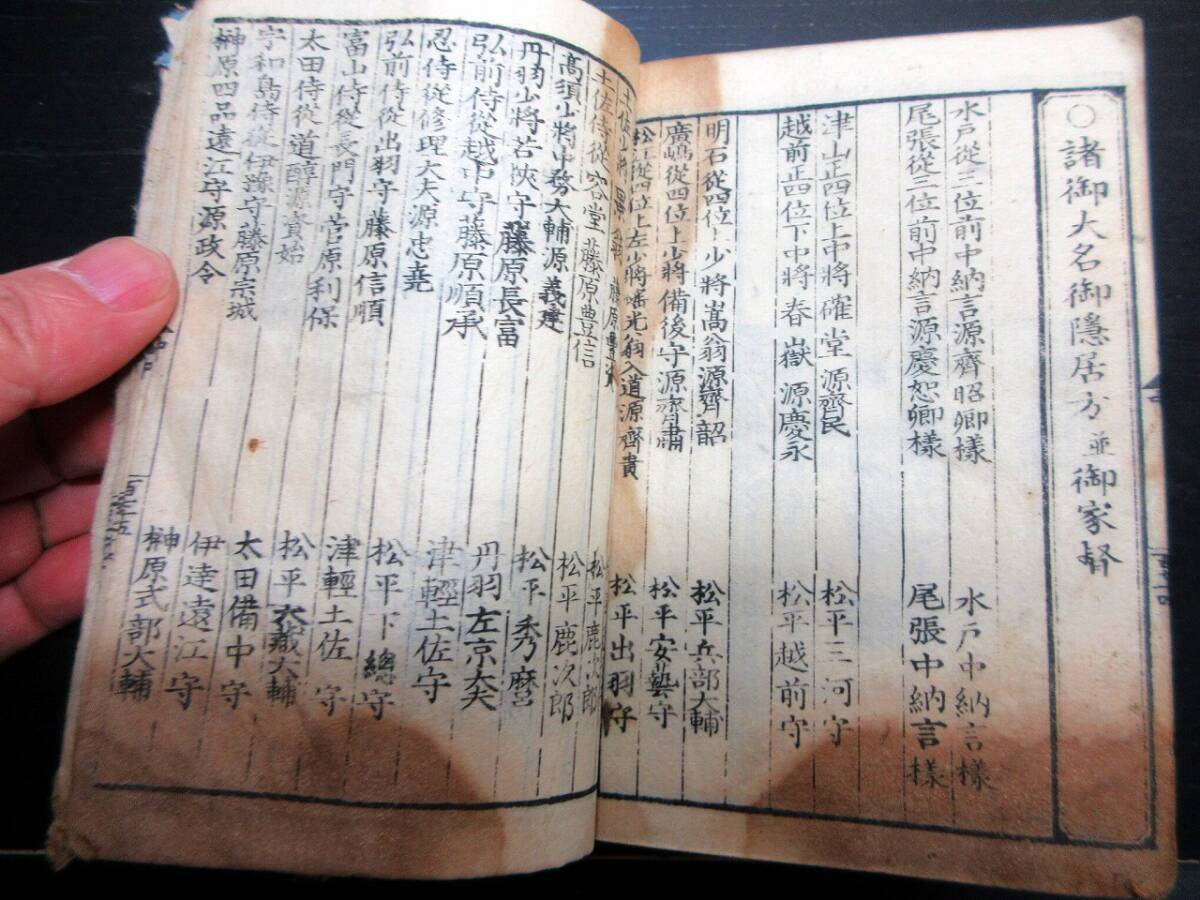 ○諸御大名御隱居方並御家督
水戸從三位前中納言源齊昭卿樣 水戸中納言樣
尾張從三位前中納言源慶恕卿樣 尾張中納言樣
津山正四位上中將確堂源齊民 松平三河守
越前正四位下中將春嶽源慶永 松平越前守
明石從四位上少將嵩翁源齊韶 松平兵部大輔
廣嶋從四位上少將備後守源齊肅 松平安藝守
松江從四位上左少將瑤光翁入道源齊貴 松平出羽守
土佐少將 藤原豊資 松平鹿次郎
土佐侍從容堂藤原豊信 松平鹿次郎
高須少將中務大輔源義建 松平秀麿
丹羽少將若狹守藤原長富 丹羽左京大夫
弘前侍從越中守藤原順承 津輕土佐守
忍侍從修理大夫源忠堯 松平下總守
弘前侍從出羽守藤原信順 津輕土佐守
富山侍從長門守菅原利保 松平大藏大輔
太田侍從道醇源資始 太田備中守
宇和島侍從伊豫守藤原宗城 伊達遠江守
榊原四品遠江守源政令 榊原式部大輔